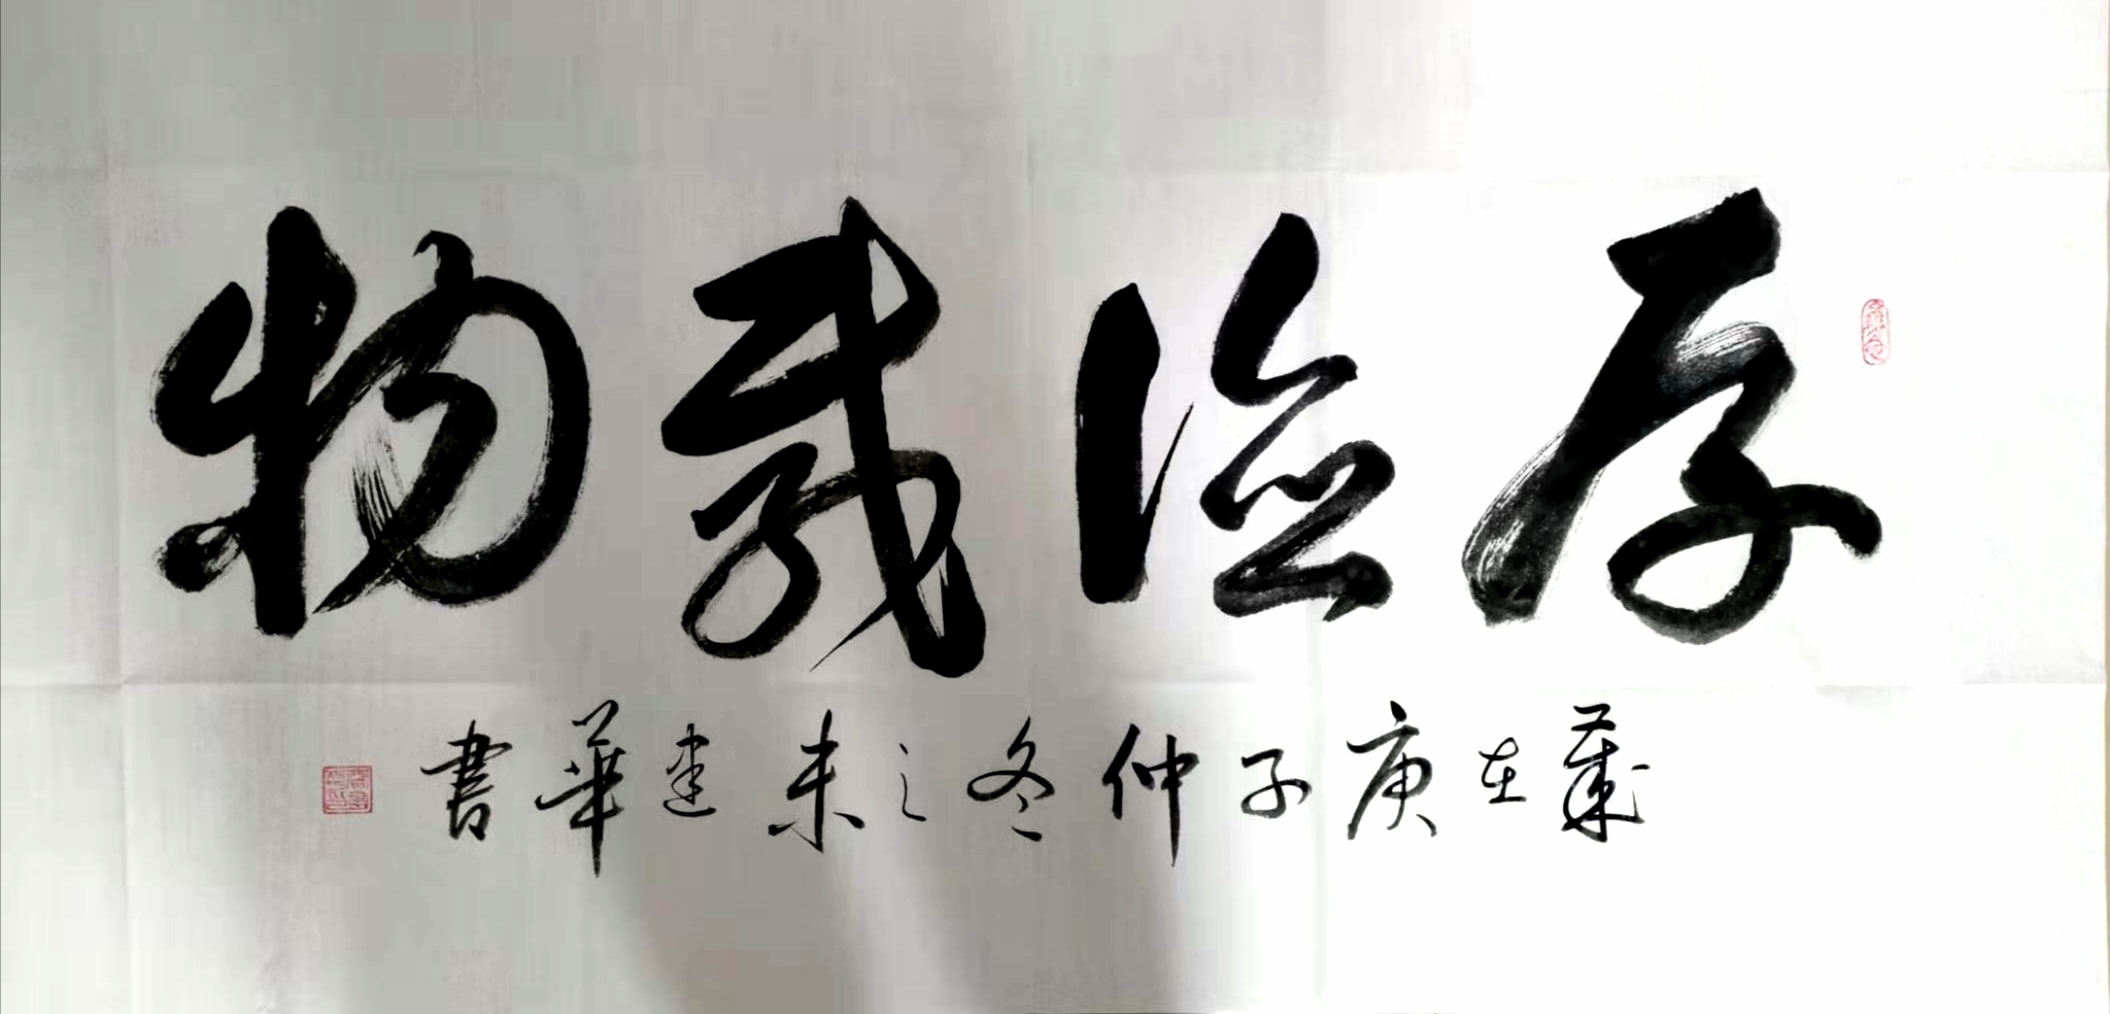 厚德載物
歲在庚子仲冬之末建華書